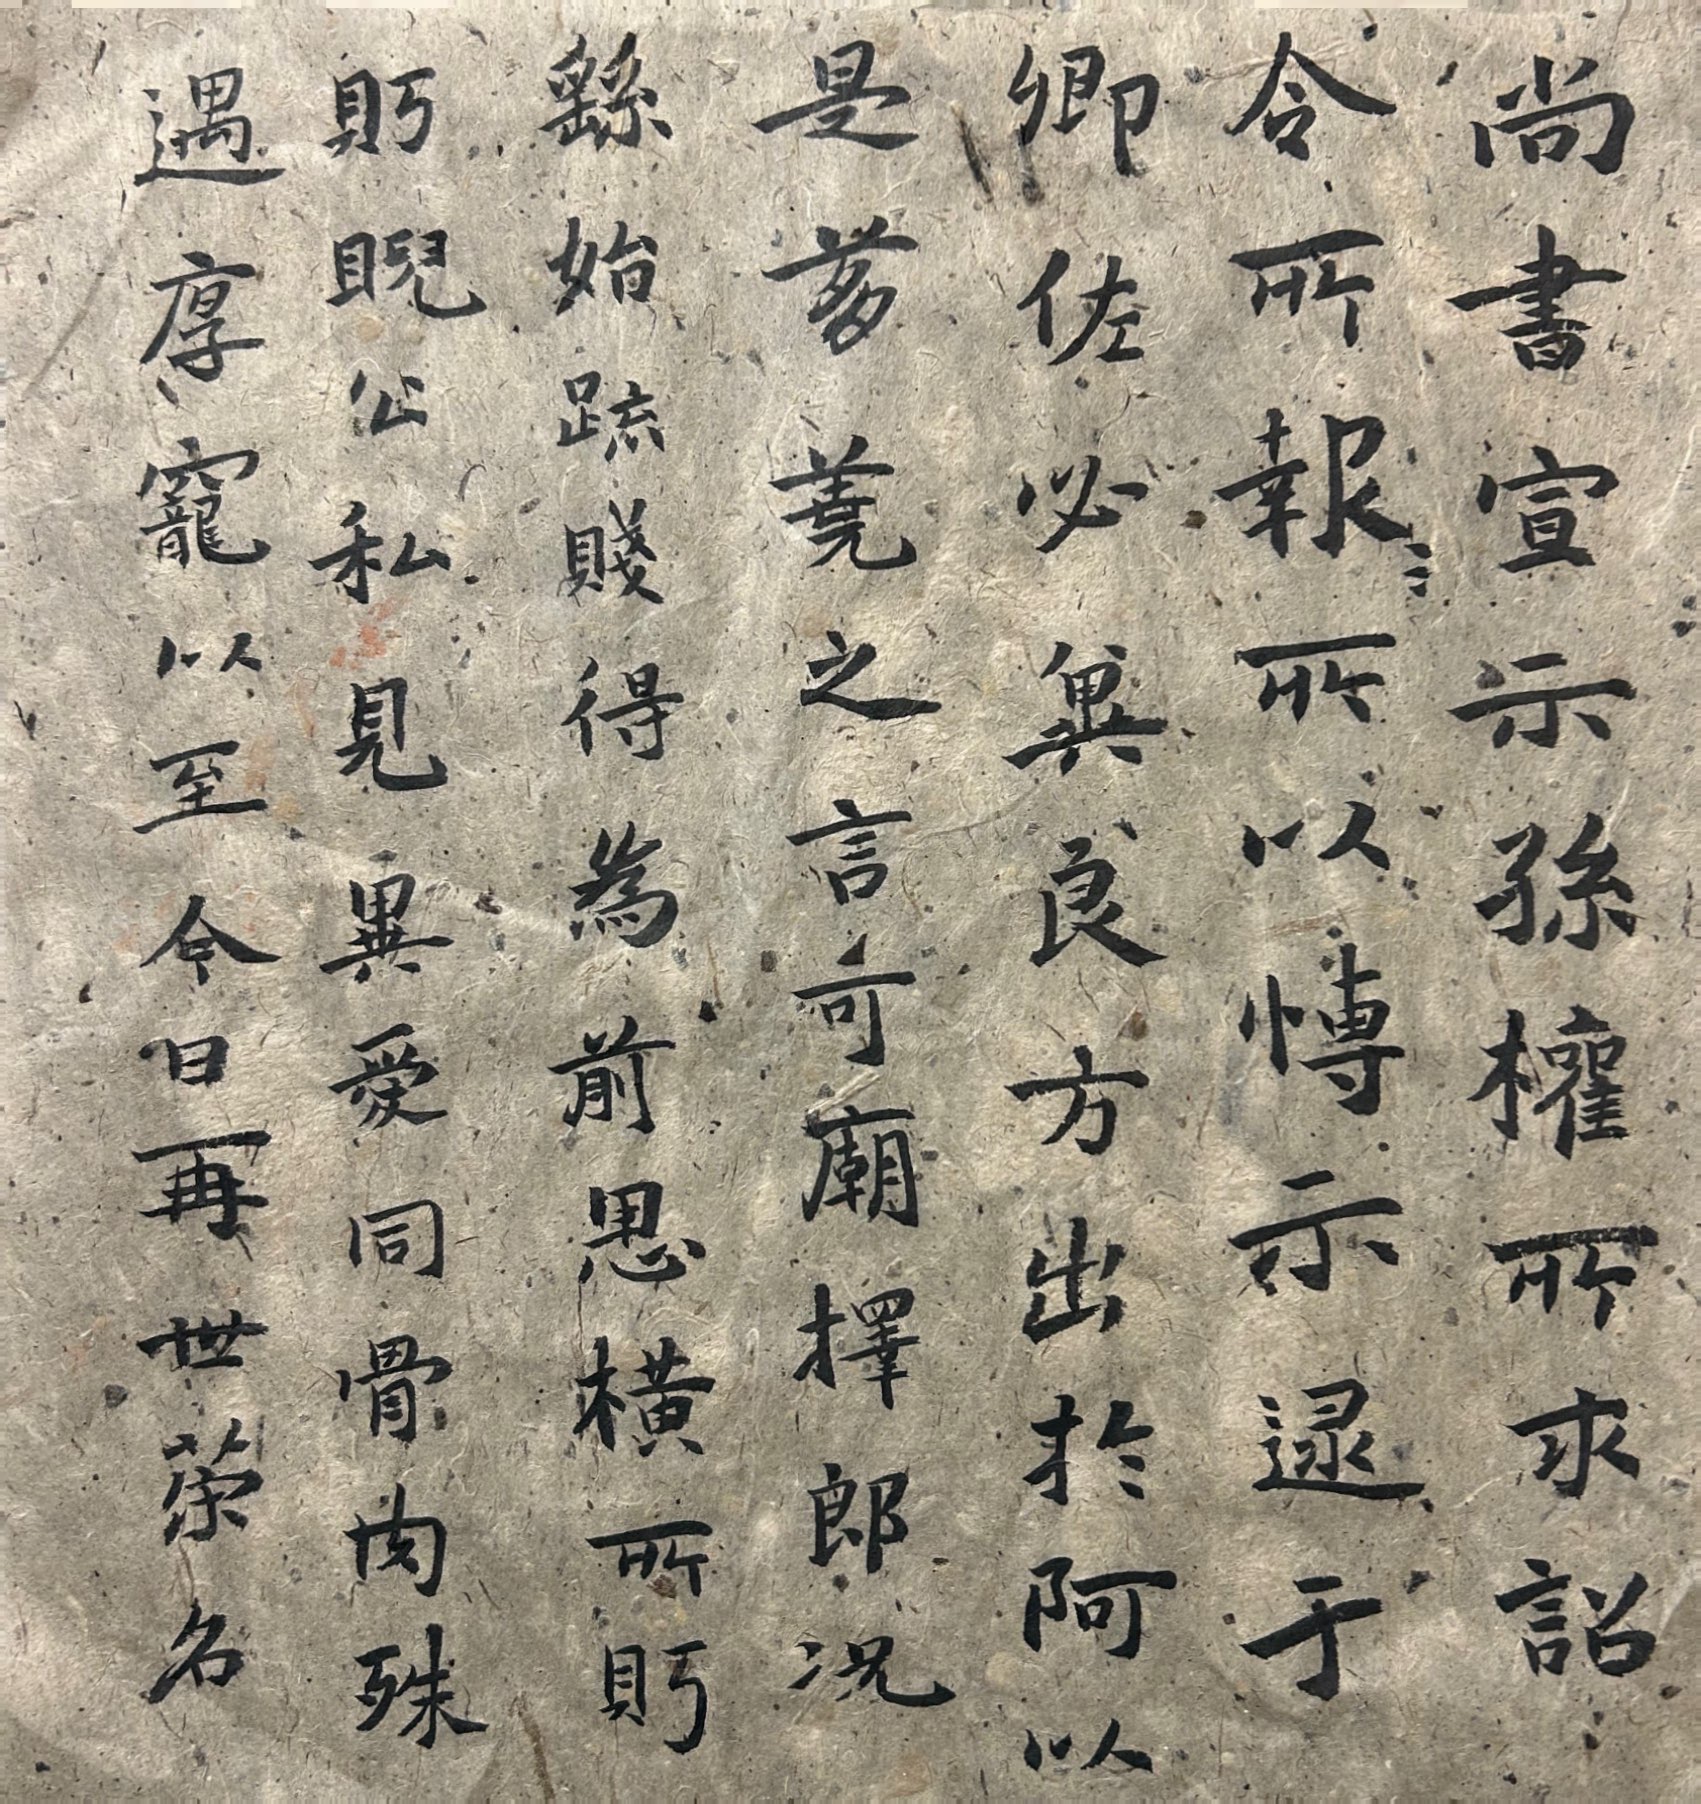 尚書宣示孫權所求詔
令所報所以愽示逮于
卿佐必冀良方出於阿以
是芻蕘之言可廟擇郎况
繇始疏賤得為前恩橫所眄
眄睨公私見異愛同骨肉殊
遇厚寵以至今日再世榮名